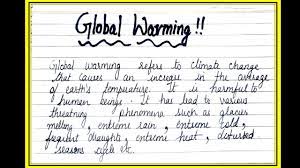 Global Warming!!
Global warming refers to climate change
that causes an increase in the average
of earth's temperature. It is harmful to
human beings. It has lead to various
threatning phenomena such as glacier
melting, extreme rain, extreme cold,
frequent droughts, extreme heat, disturbed
seasons cycle etc.